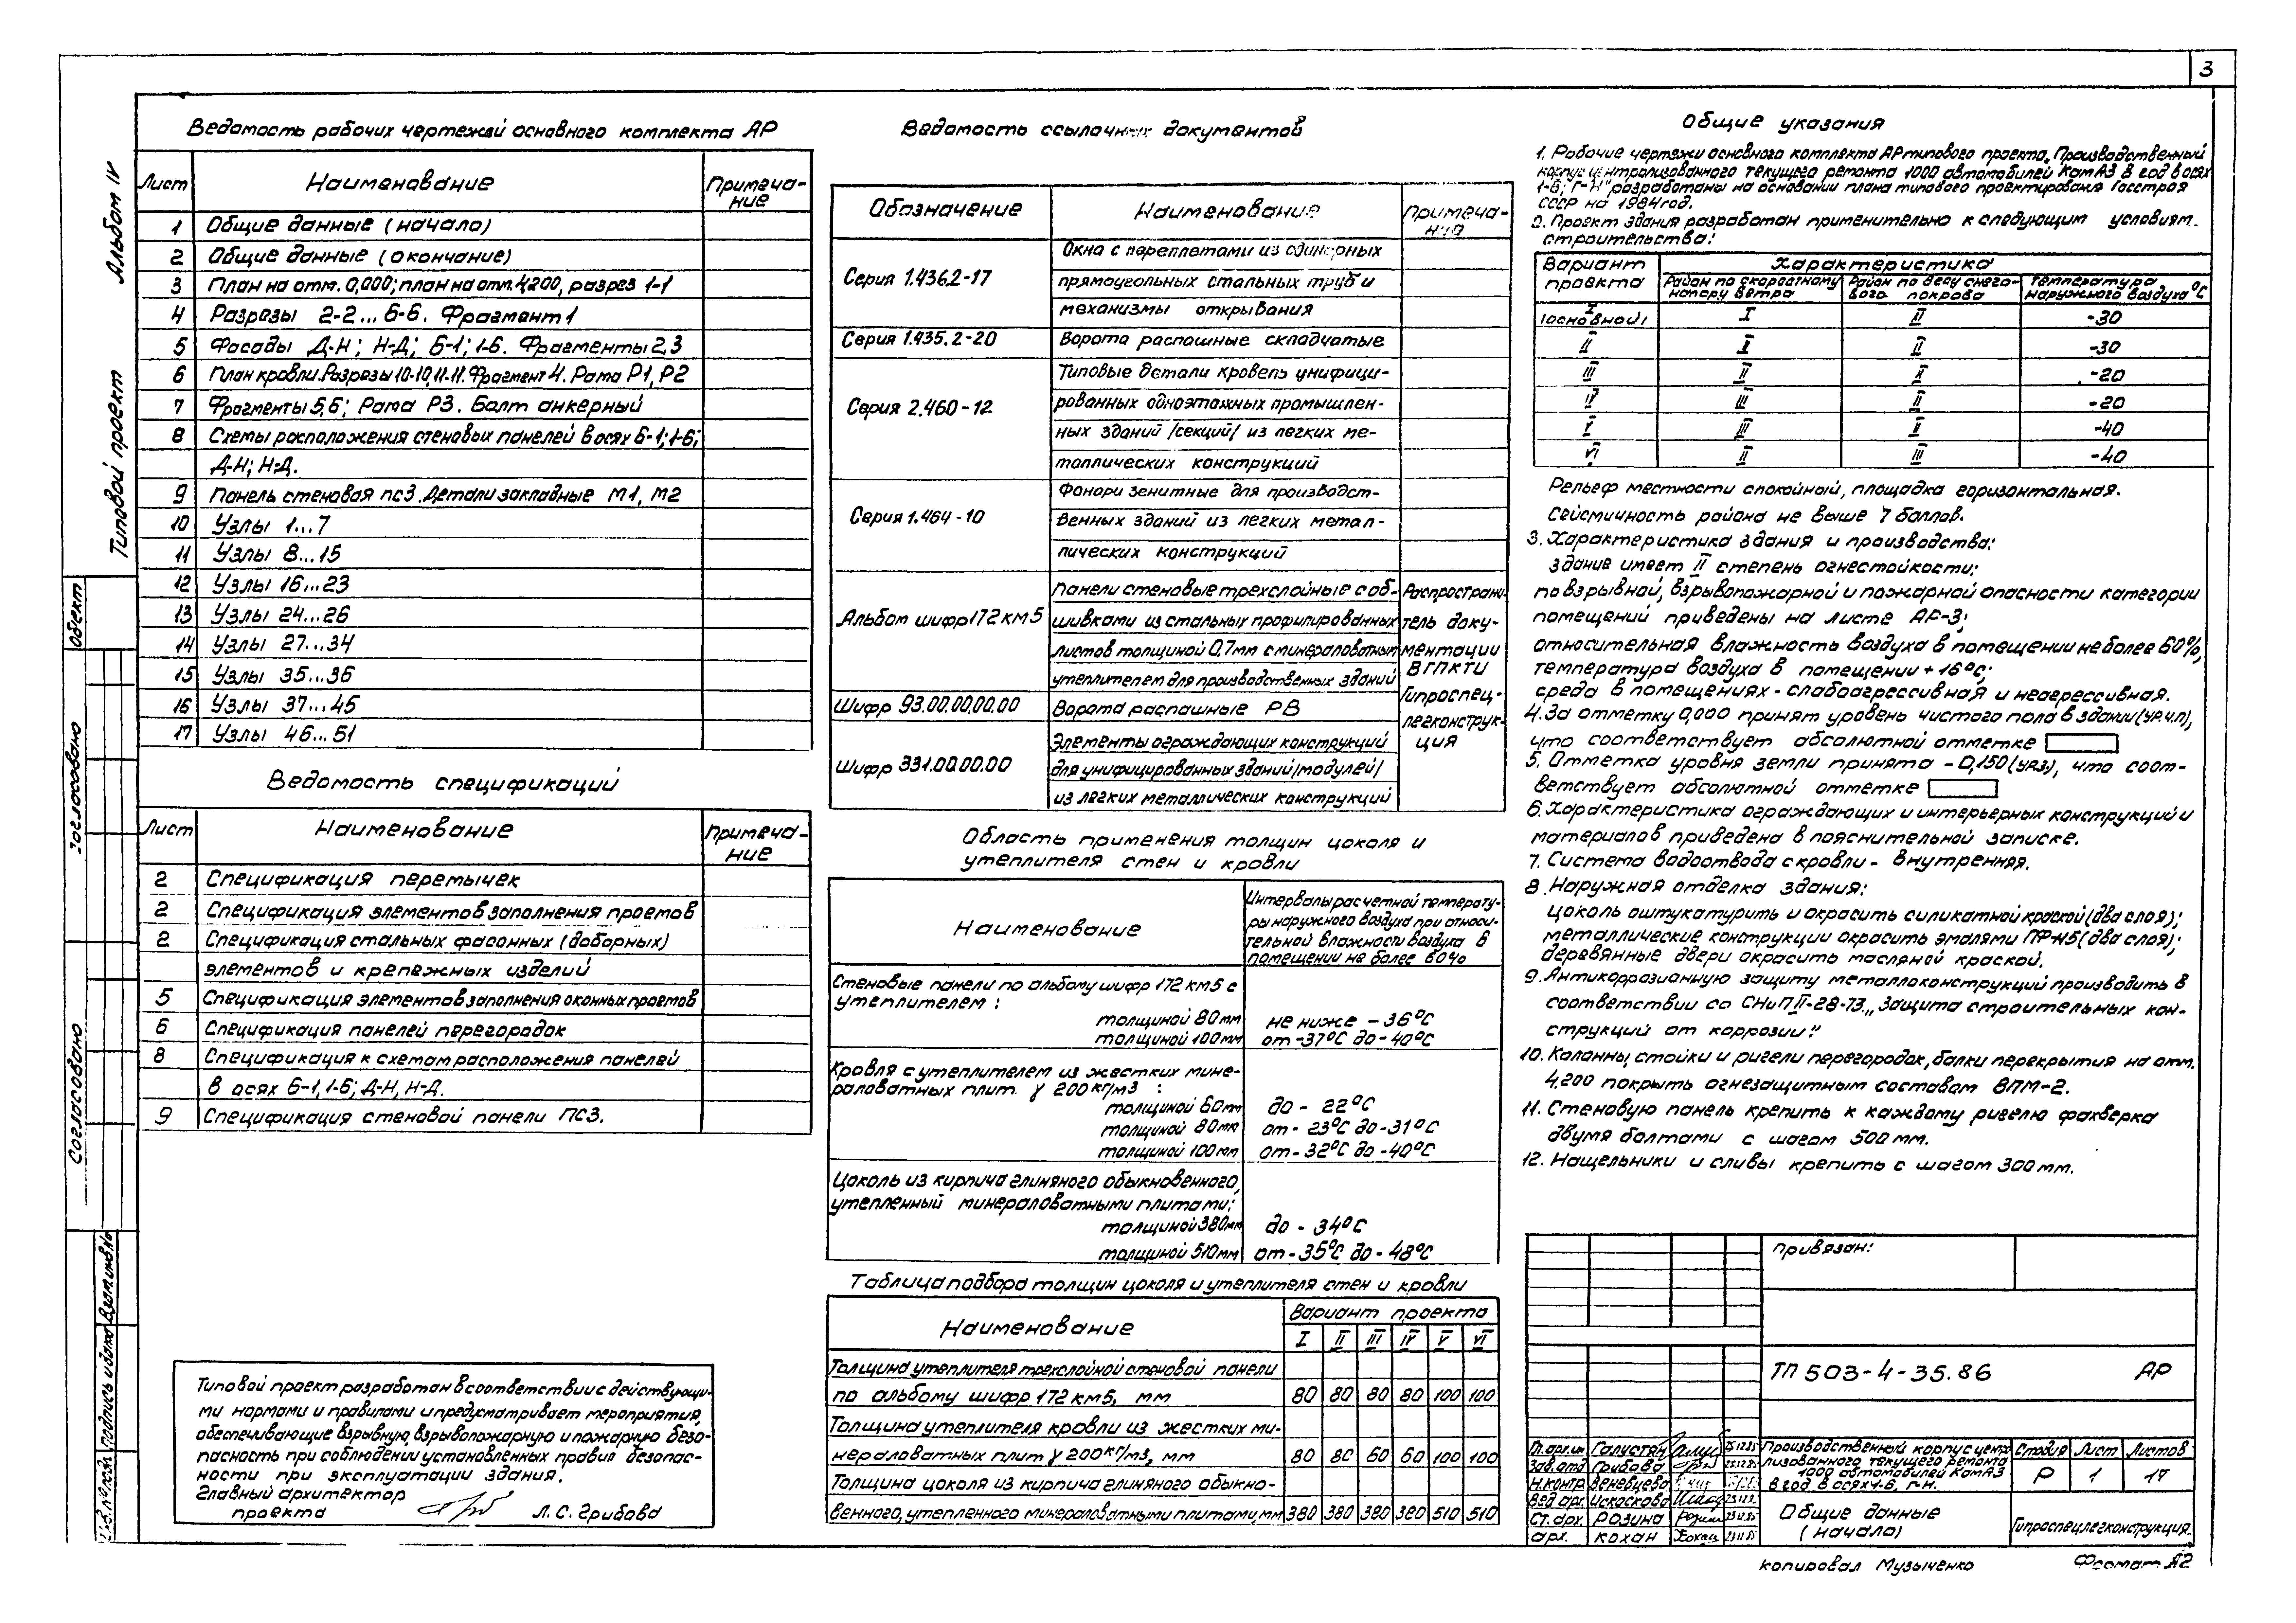 3
Альбом IV
Типовой проект
Объект
Согласовано
Согласовано
Взам.инв.№
Подпись и дата
Инв.№ подл.
Ведомость рабочих чертежей основного комплекта АР
Лист
Наименование
Примеча-
ние
1 Общие данные (начало)
2 Общие данные (окончание)
3 План на отм. 0,000; план на отм. 4.200, разрез 1-1
4 Разрезы 2-2...6-6. Фрагмент 1
5 Фасады Д-Н; Н-Д; 6-1; 1-6. Фрагменты 2,3
6 План кровли. Разрезы 10-10, 11-11. Фрагмент 4. Рама Р1, Р2
7 Фрагменты 5,6; Рама Р3. Болт анкерный
8 Схемы расположения стеновых панелей в осях 6-1; 1-6;
Д-Н; Н-Д.
9 Панель стеновая пс3. Детали закладные М1, М2
10 Узлы 1...7
11 Узлы 8...15
12 Узлы 16...23
13 Узлы 24...26
14 Узлы 27...34
15 Узлы 35...36
16 Узлы 37...45
17 Узлы 46...51
Ведомость спецификаций
Лист
Наименование
Примеча-
ние
2 Спецификация перемычек
2 Спецификация элементов заполнения проемов
2 Спецификация стальных фасонных (доборных)
элементов и крепежных изделий
5 Спецификация элементов заполнения оконных проемов
6 Спецификация панелей перегородок
8 Спецификация к схемам расположения панелей
в осях 6-1, 1-6; Д-Н, Н-Д.
9 Спецификация стеновой панели ПС3.
Типовой проект разработан в соответствии с действующи-
ми нормами и правилами и предусматривает мероприятия,
обеспечивающие взрывную, взрывопожарную и пожарную безо-
пасность при соблюдении установленных правил безопас-
ности при эксплуатации здания.
Главный архитектор
проекта Л.С. Грибова
Ведомость ссылочных документов
Обозначение
Наименование
Примеча-
ние
Окна с переплетами из одинарных
Серия 1.436.2-17 прямоугольных стальных труб и
механизмы открывания
Серия 1.435.2-20 Ворота распашные складчатые
Типовые детали кровель унифици-
Серия 2.460-12 рованных одноэтажных промышлен-
ных зданий /секций/ из легких ме-
таллических конструкций
Фонари зенитные для производст-
Серия 1.464-10 венных зданий из легких метал-
лических конструкций
Панели стеновые трехслойные с об- Распространи-
Альбом шифр 172 км5 шивками из стальных профилированных тель доку-
листов толщиной 0,7мм с минераловатным ментации
утеплителем для производственных зданий ВГПКТИ
Шифр 93.00.00.00.00 Ворота распашные РВ Гипроспец-
легконструк-
ция
Элементы ограждающих конструкций
Шифр 331.00.00.00 для унифицированных зданий /модулей/
из легких металлических конструкций
Область применения толщин цоколя и
утеплителя стен и кровли
Наименование
Интервалы расчетной температу-
ры наружного воздуха при относи-
тельной влажности воздуха в
помещении не более 60%
Стеновые панели по альбому шифр 172 км5 с
утеплителем :
толщиной 80мм не ниже - 36°С
толщиной 100мм от -37°С до - 40°С
Кровля с утеплителем из жестких мине-
раловатных плит γ 200 кг/м3 :
толщиной 60мм до - 22°С
толщиной 80мм от - 23°С до -31°С
толщиной 100мм от - 32°С до -40°С
Цоколь из кирпича глиняного обыкновенного,
утепленный минераловатными плитами:
толщиной 380мм до - 34°С
толщиной 510мм от - 35°С до - 48°С
Таблица подбора толщин цоколя и утеплителя стен и кровли
Наименование
Вариант проекта
I II III IV V VI
Толщина утеплителя трехслойной стеновой панели
по альбому шифр 172 км5, мм 80 80 80 80 100 100
Толщина утеплителя кровли из жестких ми-
нераловатных плит γ 200 кг/м3, мм 80 80 60 60 100 100
Толщина цоколя из кирпича глиняного обыкно-
венного, утепленного минераловатными плитами, мм 380 380 380 380 510 510
Общие указания
1. Рабочие чертежи основного комплекта АР типового проекта „Производственный
корпус централизованного текущего ремонта 1000 автомобилей КамАЗ в год в осях
1-6; Г-Н" разработаны на основании плана типового проектирования Госстроя
СССР на 1984 год.
2. Проект здания разработан применительно к следующим условиям
строительства:
Вариант
проекта
Характеристика
Район по скоростному
напору ветра
Район по весу снего-
вого покрова
Температура
наружного воздуха °С
I
(основной) I II -30
II II II -30
III II II -20
IV III II -20
V III II -40
VI II III -40
Рельеф местности спокойный, площадка горизонтальная.
Сейсмичность района не выше 7 баллов.
3. Характеристика здания и производства:
здание имеет II степень огнестойкости;
по взрывной, взрывопожарной и пожарной опасности категории
помещений приведены на листе АР-3;
относительная влажность воздуха в помещении не более 60%,
температура воздуха в помещении + 16°С;
среда в помещениях - слабоагрессивная и неагрессивная.
4. За отметку 0,000 принят уровень чистого пола в здании (ур.ч.п),
что соответствует абсолютной отметке
5. Отметка уровня земли принята - 0,150 (ур.з.), что соот-
ветствует абсолютной отметке
6. Характеристика ограждающих и интерьерных конструкций и
материалов приведена в пояснительной записке.
7. Система водоотвода с кровли - внутренняя.
8. Наружная отделка здания:
цоколь оштукатурить и окрасить силикатной краской (два слоя);
металлические конструкции окрасить эмалями ПФ-115 (два слоя);
деревянные двери окрасить масляной краской.
9. Антикоррозионную защиту металлоконструкций производить в
соответствии со СНиП II-28-73 „Защита строительных кон-
струкций от коррозии".
10. Колонны, стойки и ригели перегородок, балки перекрытия на отм.
4.200 покрыть огнезащитным составом ВПМ-2.
11. Стеновую панель крепить к каждому ригелю фахверка
двумя болтами с шагом 500 мм.
12. Нащельники и сливы крепить с шагом 300 мм.
привязан:
ТП 503-4-35.86 АР
Гл.арх.ин. Галустян
Зав.отд Грибова
Н.контр. Веневцева
Вед.арх. Искоскова
Ст.арх. Розина 23.12.85
арх. Кохан 23.12.85
Производственный корпус центра-
лизованного текущего ремонта
1000 автомобилей КамАЗ
в год в осях 1-6, Г-Н.
Стадия Лист Листов
Р 1 17
Общие данные
(начало)
Гипроспецлегконструкция
копировал Музыченко Формат А2